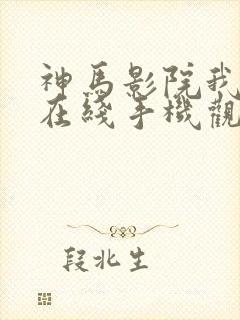 神馬影院我
在綫手機觀
段北生